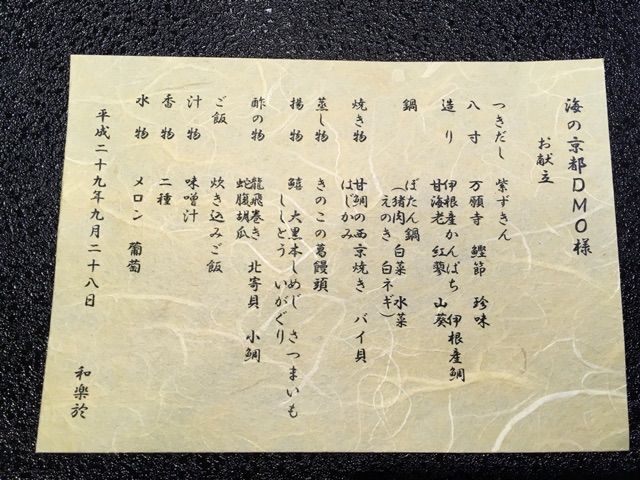 海の京都DMO様
お献立
つきだし 紫ずきん
八寸 万願寺 鰹節 珍味
造り 伊根産かんぱち 伊根産鯛
甘海老 紅蓼 山葵
鍋 ぼたん鍋
(猪肉 白菜 水菜
えのき 白ネギ)
焼き物 甘鯛の西京焼き バイ貝
はじかみ
蒸し物 きのこの葛饅頭
揚物 鱚 大黒本しめじ さつまいも
ししとう いがぐり
酢の物 龍飛巻き 北寄貝 小鯛
蛇腹胡瓜
ご飯 炊き込みご飯
汁物 味噌汁
香物 二種
水物 メロン 葡萄
平成二十九年九月二十八日
和楽於